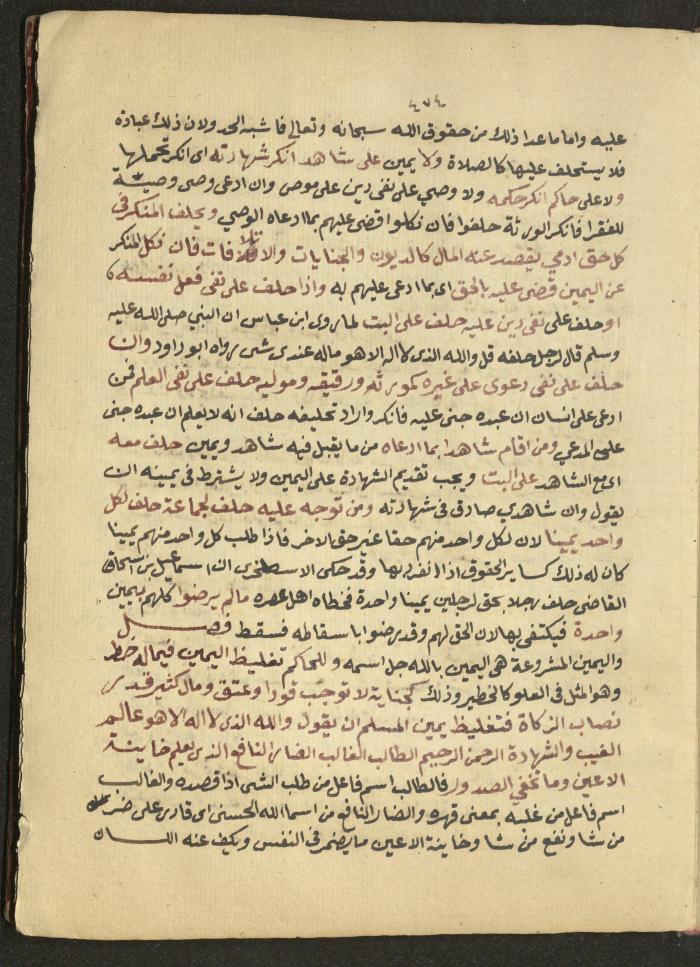 ٤٧٤
عليه واما ما عدا ذلك من حقوق الله سبحانه وتعالى فاشبه الحد ولان ذلك عبادة
فلا يستحلف عليها كالصلاة ولا يمين على شاهد انكر شهادته اى انكر تحملها
ولا على حاكم انكر حكمه ولا وصي على نفى دين على موص وان ادعى وصى وصية
للفقرا فانكر الورثة حلفوا فان نكلوا قضى عليهم بما ادعاه الوصي ويحلف المنكر فى
كل حق ادمي يقصد عنه المال كالديون والجنايات والاتلافات فان نكل المنكر
عن اليمين قضى عليه بالحق اى بما ادعى عليهم به واذا حلف على نفى فعل نفسه
او حلف على نفى دين عليه حلف على البت لما روى ابن عباس ان النبي صلى الله عليه
وسلم قال لرجل حلفه قل والله الذى لا اله الا هو ماله عندى شى رواه ابو داود وان
حلف على نفى دعوى على غيره كمورثه ورقيقه وموليه حلف على نفى العلم فمن
ادعى على انسان ان عبده جنى عليه فانكر واراد تحليفه حلف انه لا يعلم ان عبده جنى
على المدعي ومن اقام شاهدا بما ادعاه من ما يقبل فيه شاهد ويمين حلف معه
اى مع الشاهد على البت ويجب تقديم الشهادة على اليمين ولا يشترط فى يمينه ان
يقول وان شاهدي صادق فى شهادته ومن توجه عليه حلف لجماعة حلف لكل
واحد يمينا لان لكل واحد منهم حقا غير حق الاخر فاذا طلب كل واحد منهم يمينا
كان له ذلك كساير الحقوق اذا انفرد بها وقد حكى الاسطخرى ان اسماعيل بن اسحاق
القاضى حلف رجلا بحق لرجلين يمينا واحدة فخطاه اهل عصره مالم يرضوا كلهم بيمين
واحدة فيكتفى بها لان الحق لهم وقد رضوا باسقاطه فسقط فصل
واليمين المشروعة هى اليمين بالله جل اسمه وللحاكم تغليظ اليمين فيما له خطر
وهو المثل فى العلو كالخطير وذلك كجناية لا توجب قودا وعتق ومال كثير قدرى
نصاب الزكاة فتغليظ يمين المسلم ان يقول والله الذى لا اله الا هو عالم
الغيب والشهادة الرحمن الرحيم الطالب الغالب الضار النافع الذى يعلم خاينة
الاعين وما تخفي الصدور فالطالب اسم فاعل من طلب الشى اذا قصده والغالب
اسم فاعل من غلبه بمعنى قهره والضار النافع من اسما الله الحسنى اى قادر على ضر
من شا ونفع من شا وخاينة الاعين ما يضمر فى النفس ويكف عنه اللسان